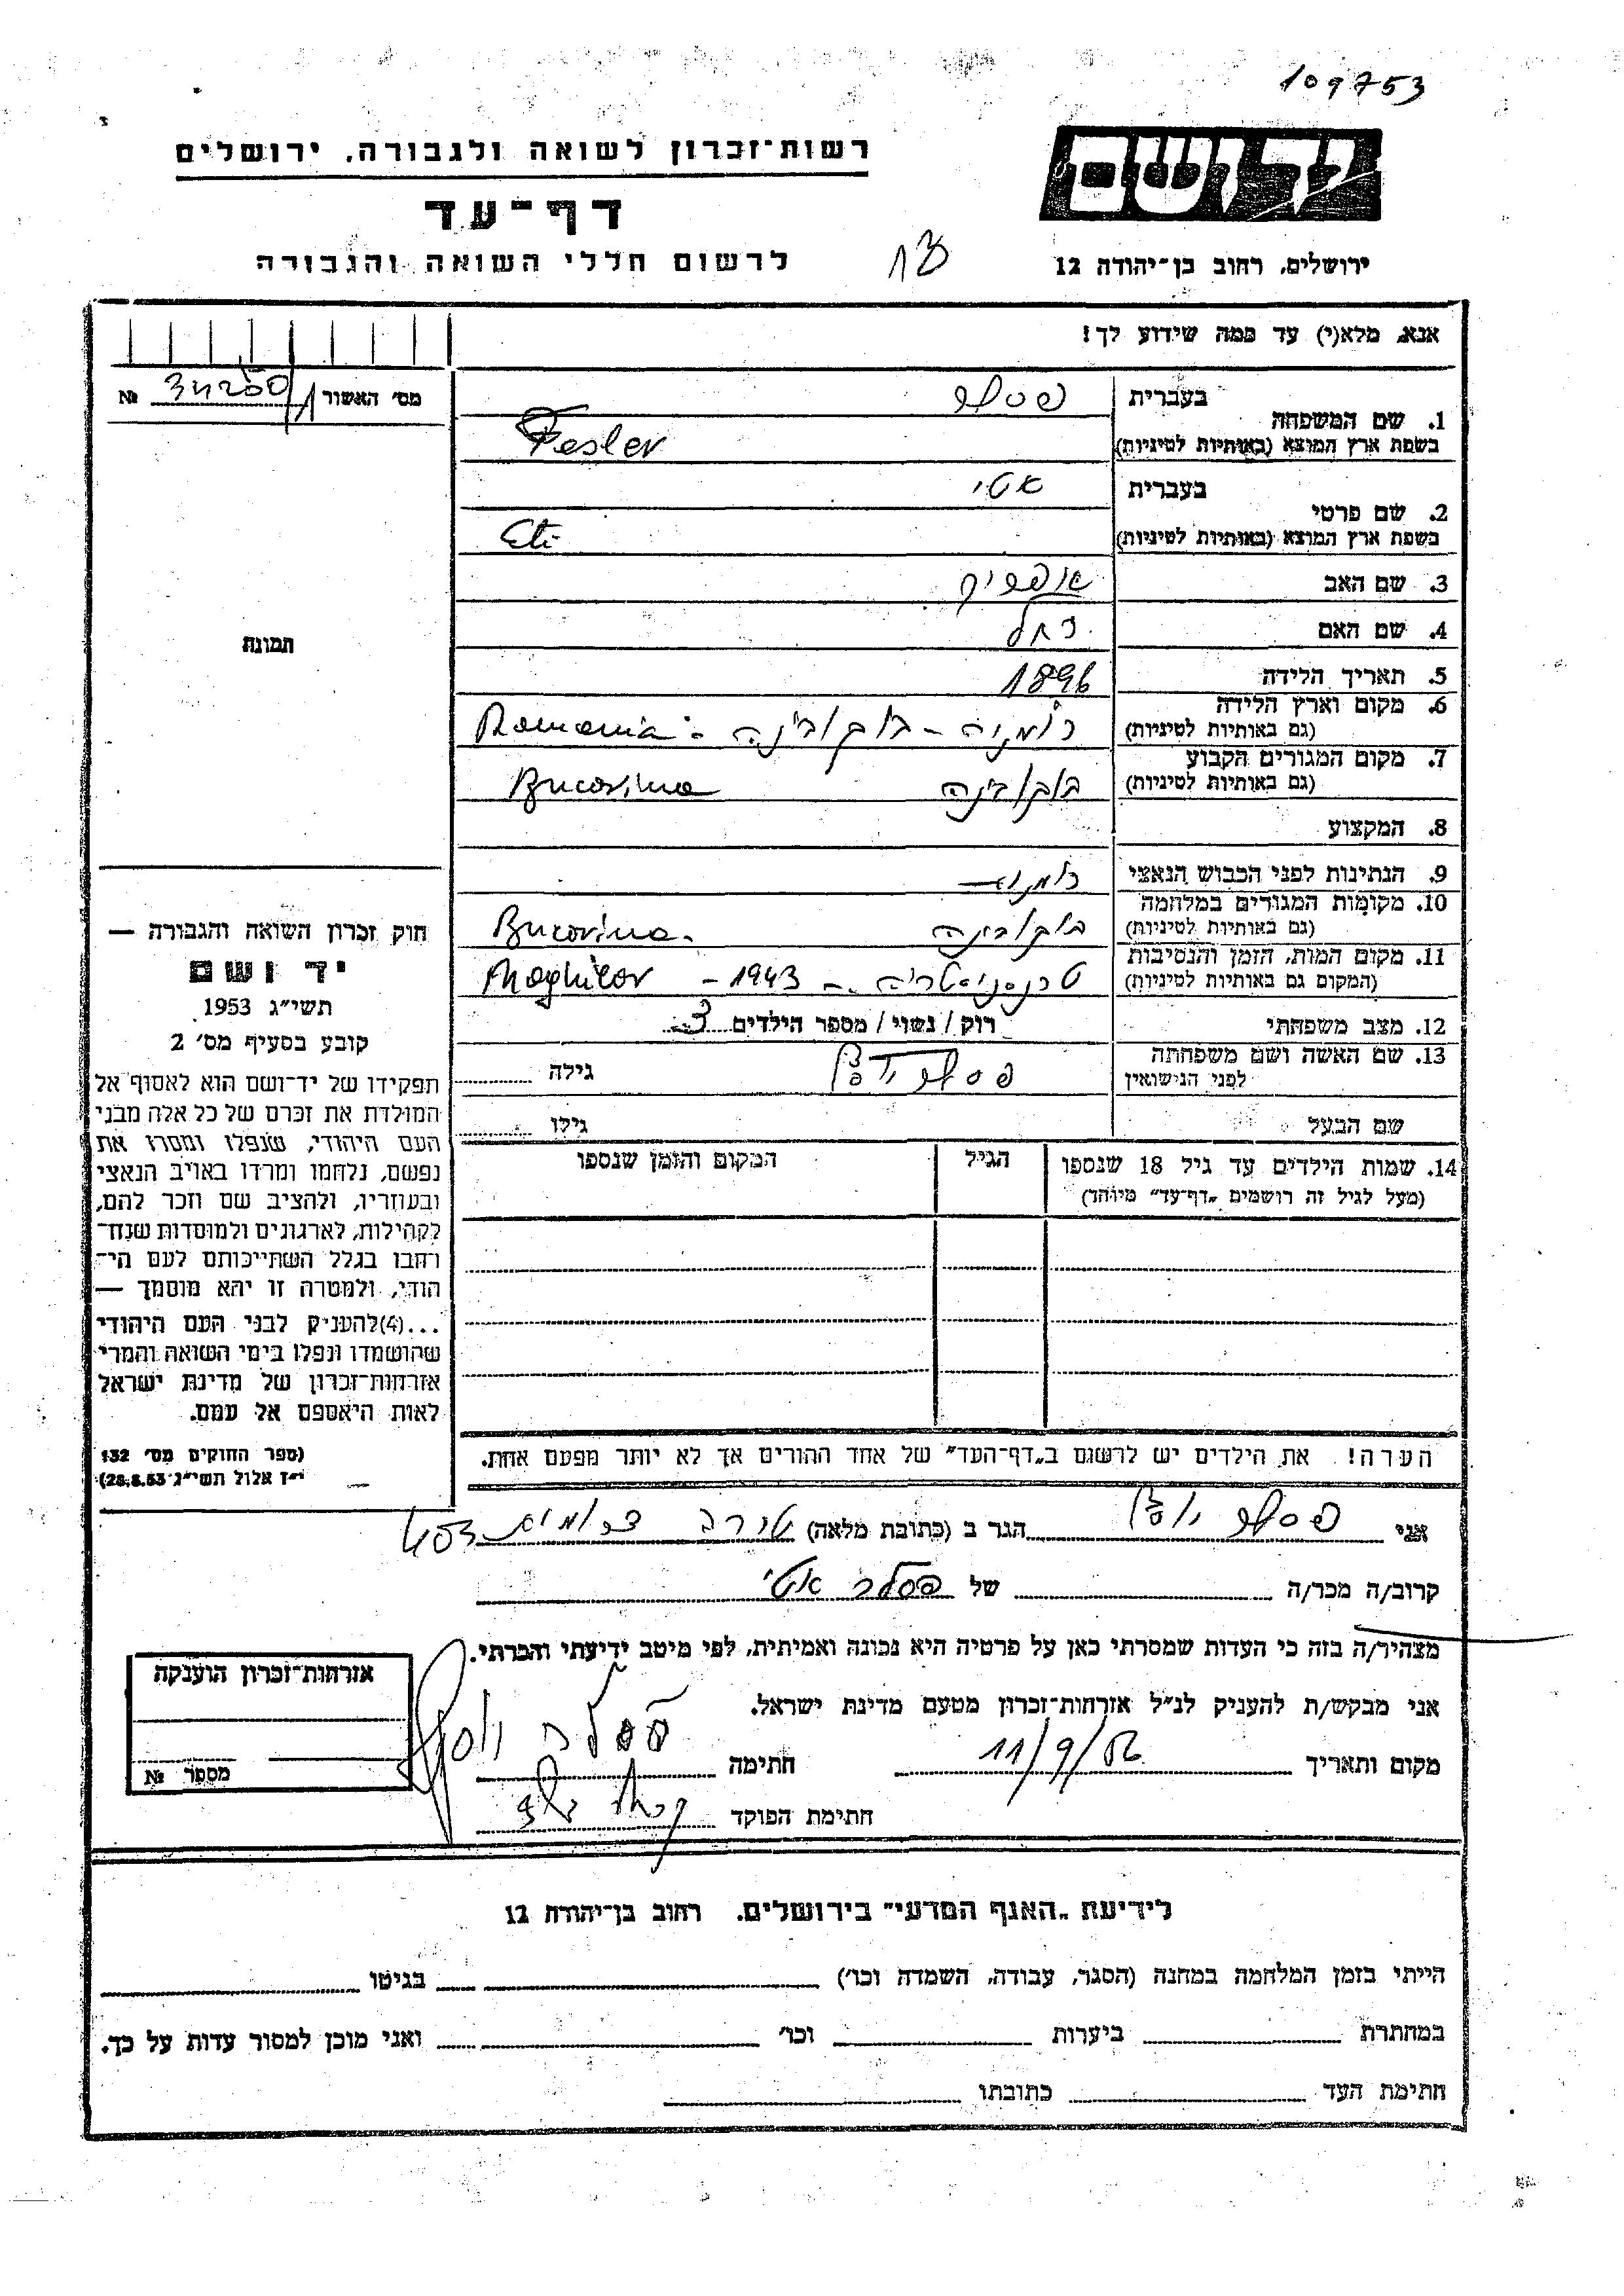 109753
רשות־זכרון לשואה ולגבורה, ירושלים
יד ושם
דף־עד
לרשום חללי השואה והגבורה
ירושלים, רחוב בן־יהודה 12
אנא, מלא(י) עד כמה שידוע לך!
מס' האשור № 34250/1
1. שם המשפחה בעברית פסלר
בשפת ארץ המוצא (באותיות לטיניות) Fesler
2. שם פרטי בעברית אטי
בשפת ארץ המוצא (באותיות לטיניות) Eti
3. שם האב
4. שם האם רחל
5. תאריך הלידה 1896
6. מקום וארץ הלידה (גם באותיות לטיניות) רומניה - בוקובינה - Romania
7. מקום המגורים הקבוע (גם באותיות לטיניות) בוקובינה Bucovina
8. המקצוע
9. הנתינות לפני הכבוש הנאצי
10. מקומות המגורים במלחמה (גם באותיות לטיניות) בוקובינה Bucovina
11. מקום המות, הזמן והנסיבות (המקום גם באותיות לטיניות) טרנסניסטריה - 1943 - Moghilov
12. מצב משפחתי רוק / נשוי / מספר הילדים 3
13. שם האשה ושם משפחתה לפני הנישואין פסלר גילה
שם הבעל גילו
14. שמות הילדים עד גיל 18 שנספו
(מעל לגיל זה רושמים "דף־עד" מיוחד)
הגיל
המקום והזמן שנספו
תמונה
חוק זכרון השואה והגבורה —
יד ושם
תשי"ג 1953
קובע בסעיף מס' 2
תפקידו של יד־ושם הוא לאסוף אל
המולדת את זכרם של כל אלה מבני
העם היהודי, שנפלו ומסרו את
נפשם, נלחמו ומרדו באויב הנאצי
ובעוזריו, ולהציב שם וזכר להם,
לקהילות, לארגונים ולמוסדות שנח־
רחבו בגלל השתייכותם לעם הי־
הודי, ולמטרה זו יהא מוסמך —
...(4) להעניק לבני העם היהודי
שהושמדו ונפלו בימי השואה והמרי
אזרחות־זכרון של מדינת ישראל
לאות היאספם אל עמם.
(ספר החוקים מס' 132
י"ז אלול תשי"ג 28.8.53)
הערה! את הילדים יש לרשום ב"דף־העד" של אחד ההורים אך לא יותר מפעם אחת.
אני פסלר הגר ב (כתובת מלאה)
קרוב/ה מכר/ה של פסלר אטי
מצהיר/ה בזה כי העדות שמסרתי כאן על פרטיה היא נכונה ואמיתית, לפי מיטב ידיעתי והכרתי.
אני מבקש/ת להעניק לנ"ל אזרחות־זכרון מטעם מדינת ישראל.
מקום ותאריך 11/9/56 חתימה פסלר
חתימת הפוקד
אזרחות־זכרון הוענקה
מספר №
לידיעת "האגף המדעי" בירושלים, רחוב בן־יהודה 12
הייתי בזמן המלחמה במחנה (הסגר, עבודה, השמדה וכו') בגיטו
במחתרת ביערות וכו' ואני מוכן למסור עדות על כך.
חתימת העד כתובתו